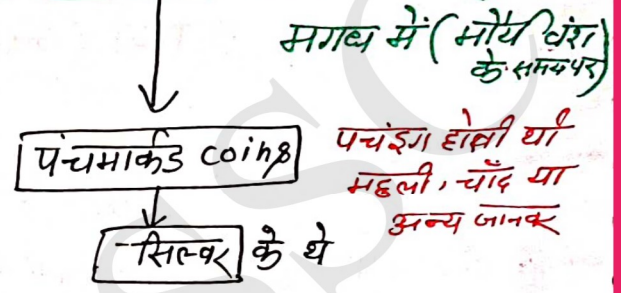 मगध में (मौर्य वंश
के समय पर)
पंचमार्कड coins
पचंइग होती थी
मछली, चाँद या
अन्य जानवर
सिल्वर के थे
SSC